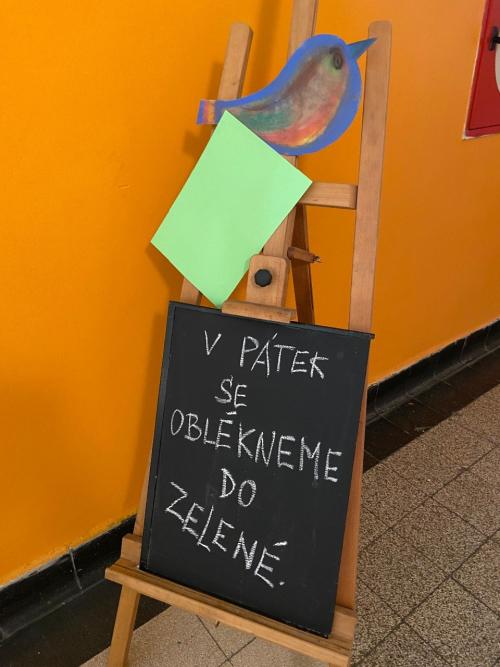 V PÁTEK
SE
OBLÉKNEME
DO
ZELENÉ.